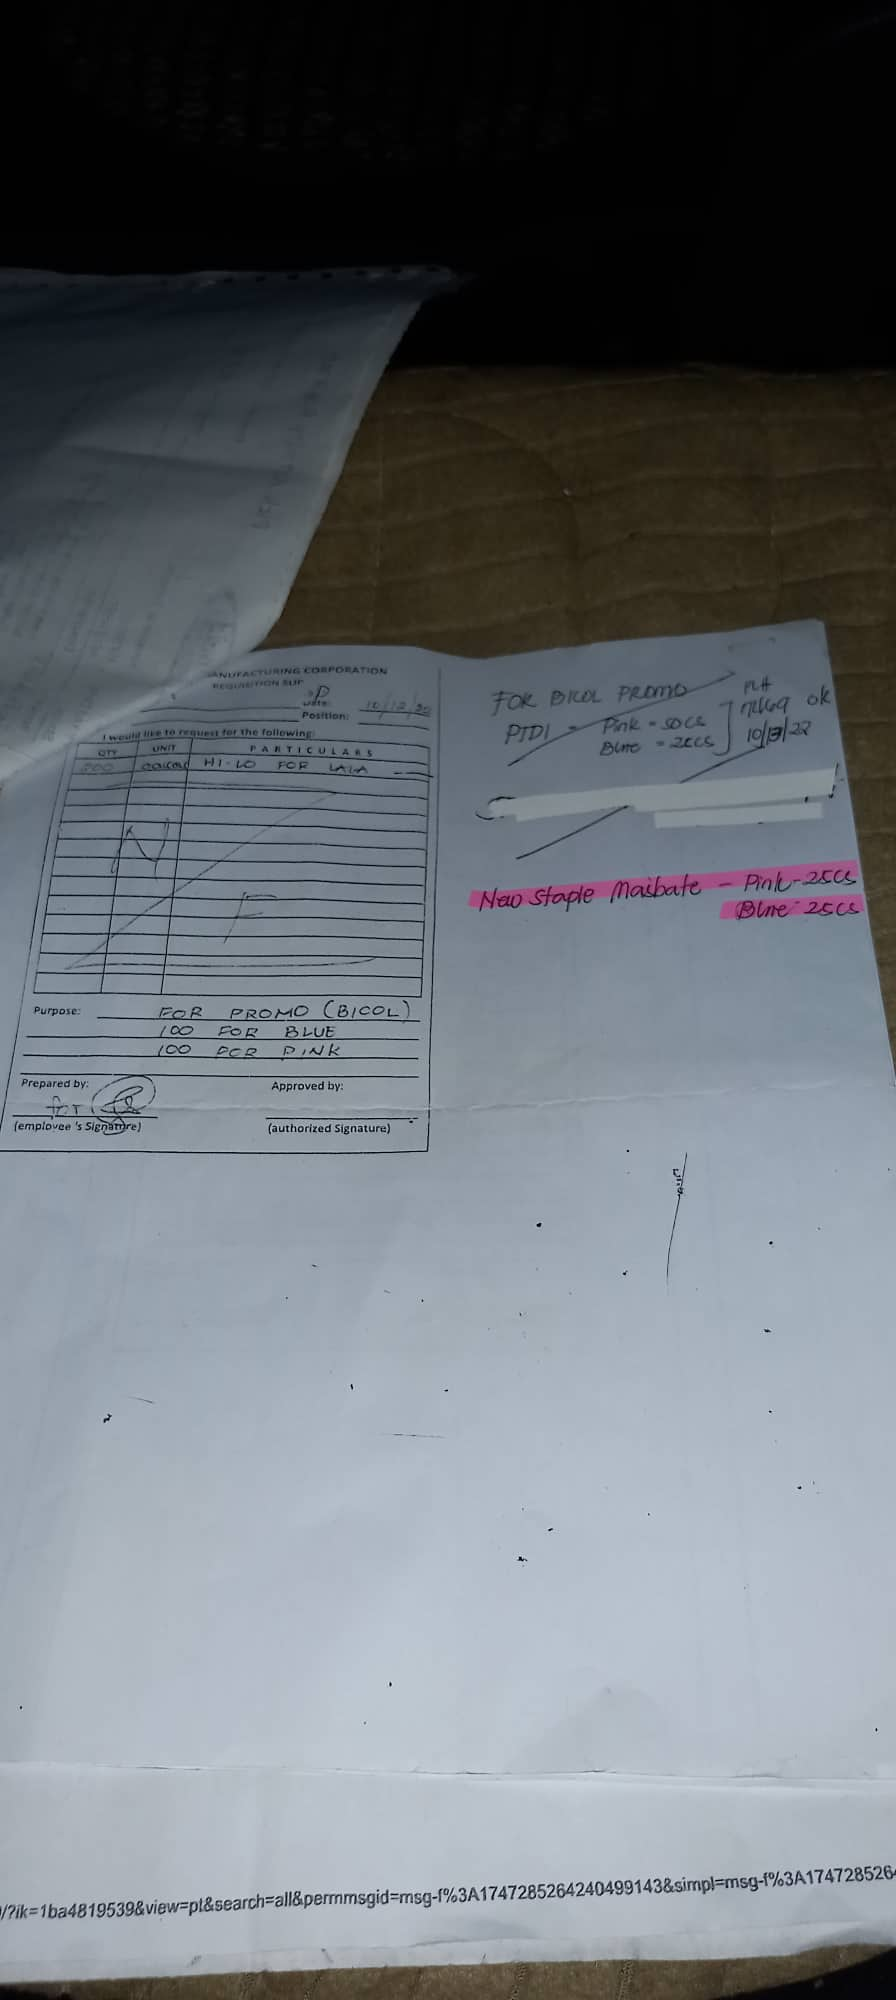 ANUFACTURING CORPORATION
REQUISITION SLIP
Date: 10/12/22
Position:
I would like to request for the following:
QTY UNIT PARTICULARS
200 HI-LO FOR LALA
N
F
Purpose: FOR PROMO (BICOL)
100 FOR BLUE
100 FOR PINK
Prepared by: Approved by:
for
(employee 's Signature) (authorized Signature)
FOR BICOL PROMO
PTDI = Pink = 50cs
Blue = 25cs
ok
10/13/22
New Staple Masbate - Pink - 25cs
Blue - 25cs
/?ik=1ba4819539&view=pt&search=all&permmsgid=msg-f%3A1747285264240499143&simpl=msg-f%3A174728526